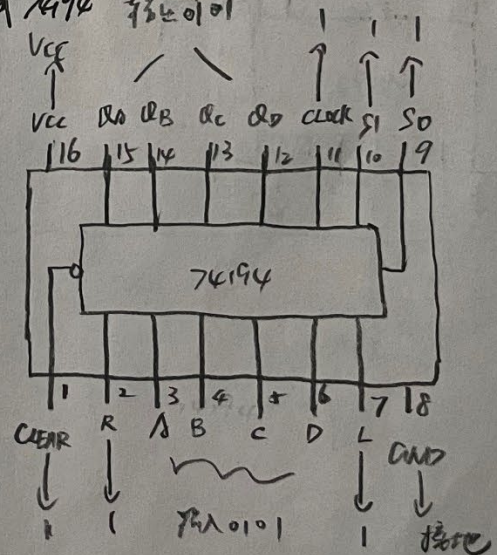 74194 输出0101
VCC 1 1 1
VCC QA QB QC QD CLOCK S1 S0
16 15 14 13 12 11 10 9
74194
1 2 3 4 5 6 7 8
CLEAR R A B C D L GND
1 1 输入0101 1 接地